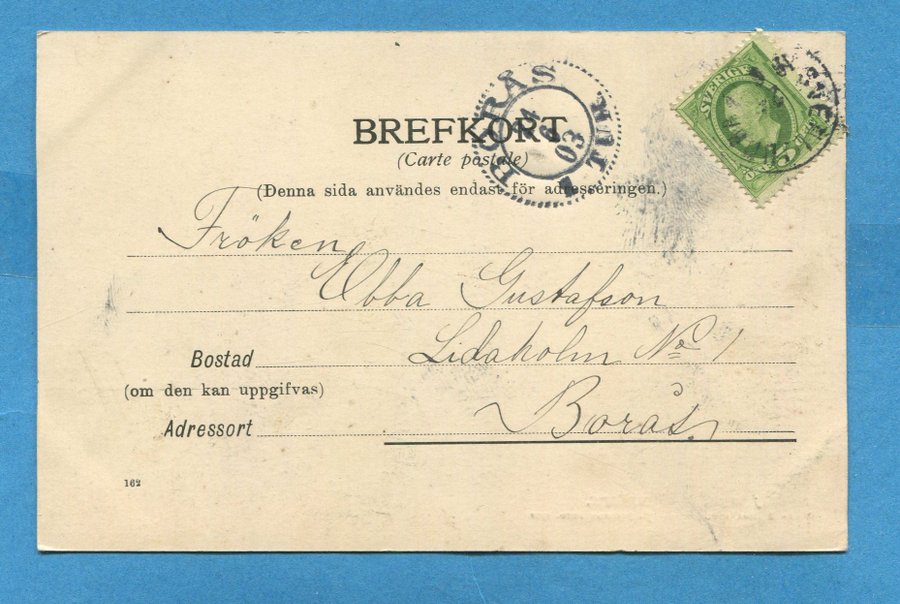 BREFKORT
(Carte postale)
(Denna sida användes endast för adresseringen.)
BORÅS
TUR
14
03
SVERIGE
Fröken
Ebba Gustafson
Bostad Lidaholm No 1
(om den kan uppgifvas)
Adressort Borås.
162